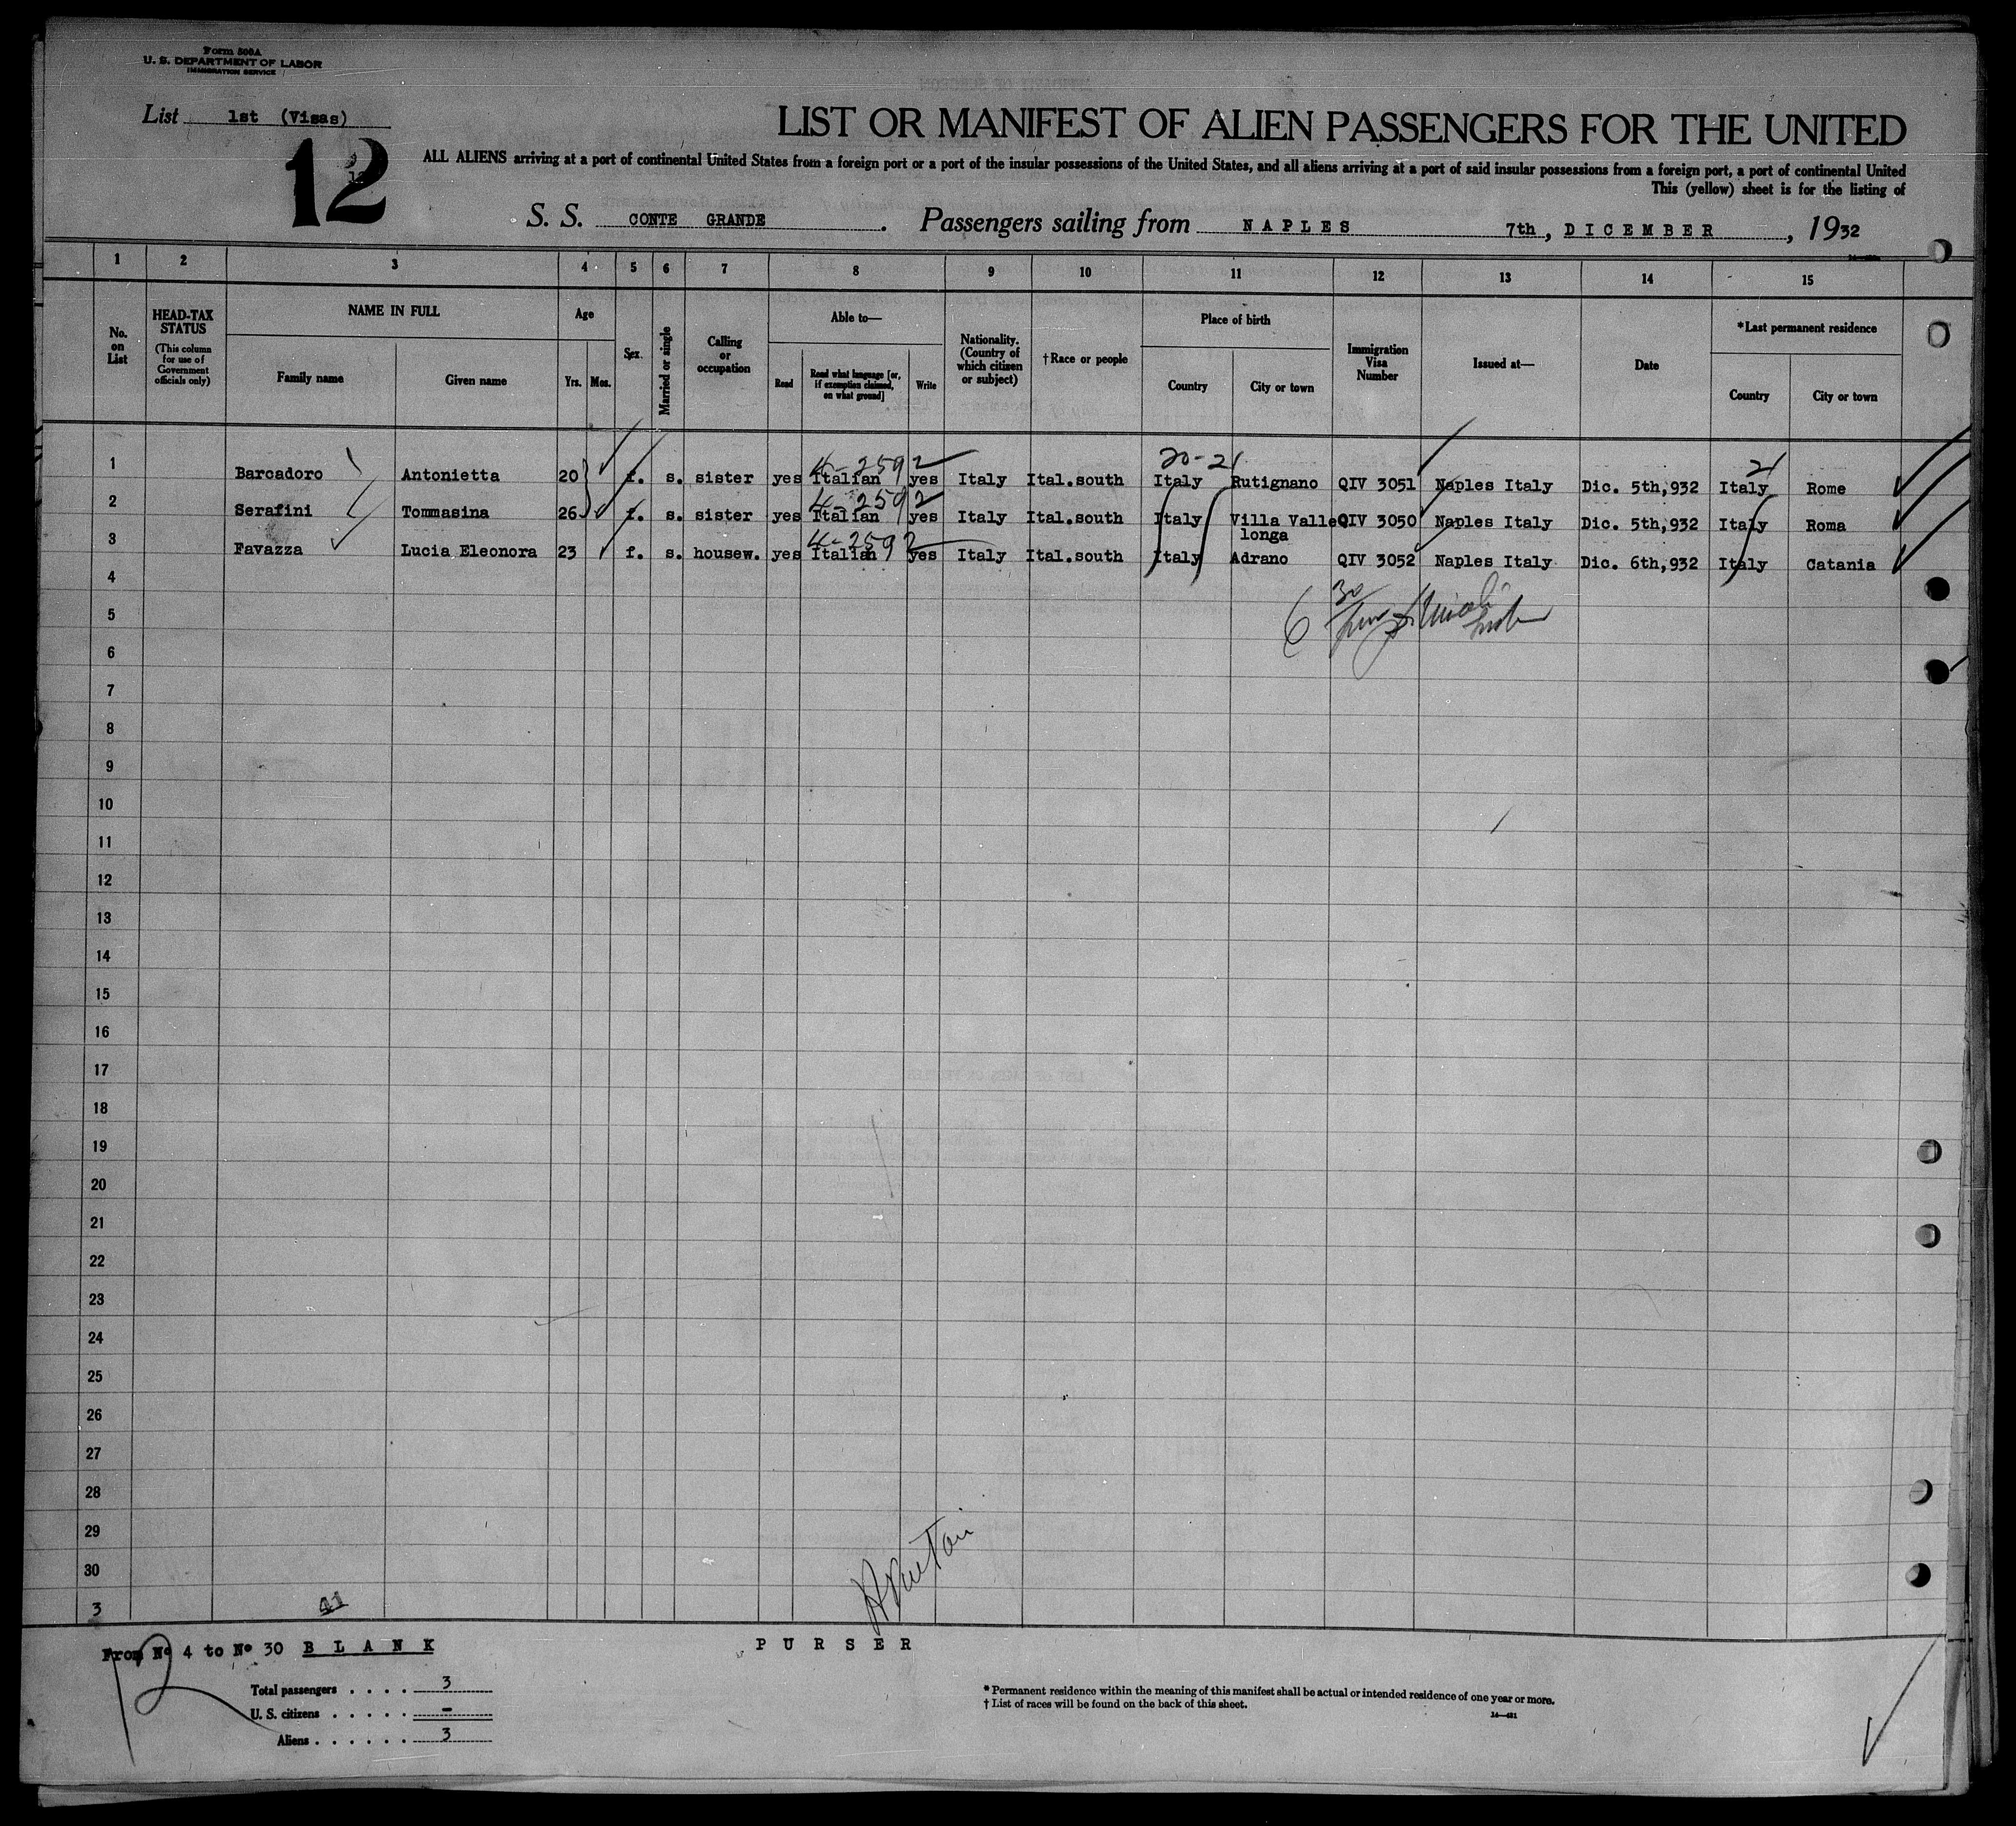 Form 500A
U. S. DEPARTMENT OF LABOR
IMMIGRATION SERVICE
List 1st (Visas)
12
LIST OR MANIFEST OF ALIEN PASSENGERS FOR THE UNITED
ALL ALIENS arriving at a port of continental United States from a foreign port or a port of the insular possessions of the United States, and all aliens arriving at a port of said insular possessions from a foreign port, a port of continental United
This (yellow) sheet is for the listing of
S. S. CONTE GRANDE. Passengers sailing from NAPLES 7th, DICEMBER, 1932
1 2 3 4 5 6 7 8 9 10 11 12 13 14 15
No. on List
HEAD-TAX STATUS
(This column for use of Government officials only)
NAME IN FULL
Family name
Given name
Age
Yrs. Mos.
Sex.
Married or single
Calling or occupation
Able to—
Read
Read what language [or, if exemption claimed, on what ground]
Write
Nationality. (Country of which citizen or subject)
†Race or people
Place of birth
Country
City or town
Immigration Visa Number
Issued at—
Date
*Last permanent residence
Country
City or town
4-2592 20-21 21
1 Barcadoro Antonietta 20 f. s. sister yes Italian yes Italy Ital.south Italy Rutignano QIV 3051 Naples Italy Dic. 5th,932 Italy Rome
4-2592
2 Serafini Tommasina 26 f. s. sister yes Italian yes Italy Ital.south Italy Villa Valle QIV 3050 Naples Italy Dic. 5th,932 Italy Roma
longa
4-2592
3 Favazza Lucia Eleonora 23 f. s. housew. yes Italian yes Italy Ital.south Italy Adrano QIV 3052 Naples Italy Dic. 6th,932 Italy Catania
4
5
6
7
8
9
10
11
12
13
14
15
16
17
18
19
20
21
22
23
24
25
26
27
28
29
30
3
From Nº 4 to Nº 30 BLANK
PURSER
12
Total passengers . . . . 3
U. S. citizens . . . . . -
Aliens . . . . . . 3
* Permanent residence within the meaning of this manifest shall be actual or intended residence of one year or more.
† List of races will be found on the back of this sheet.